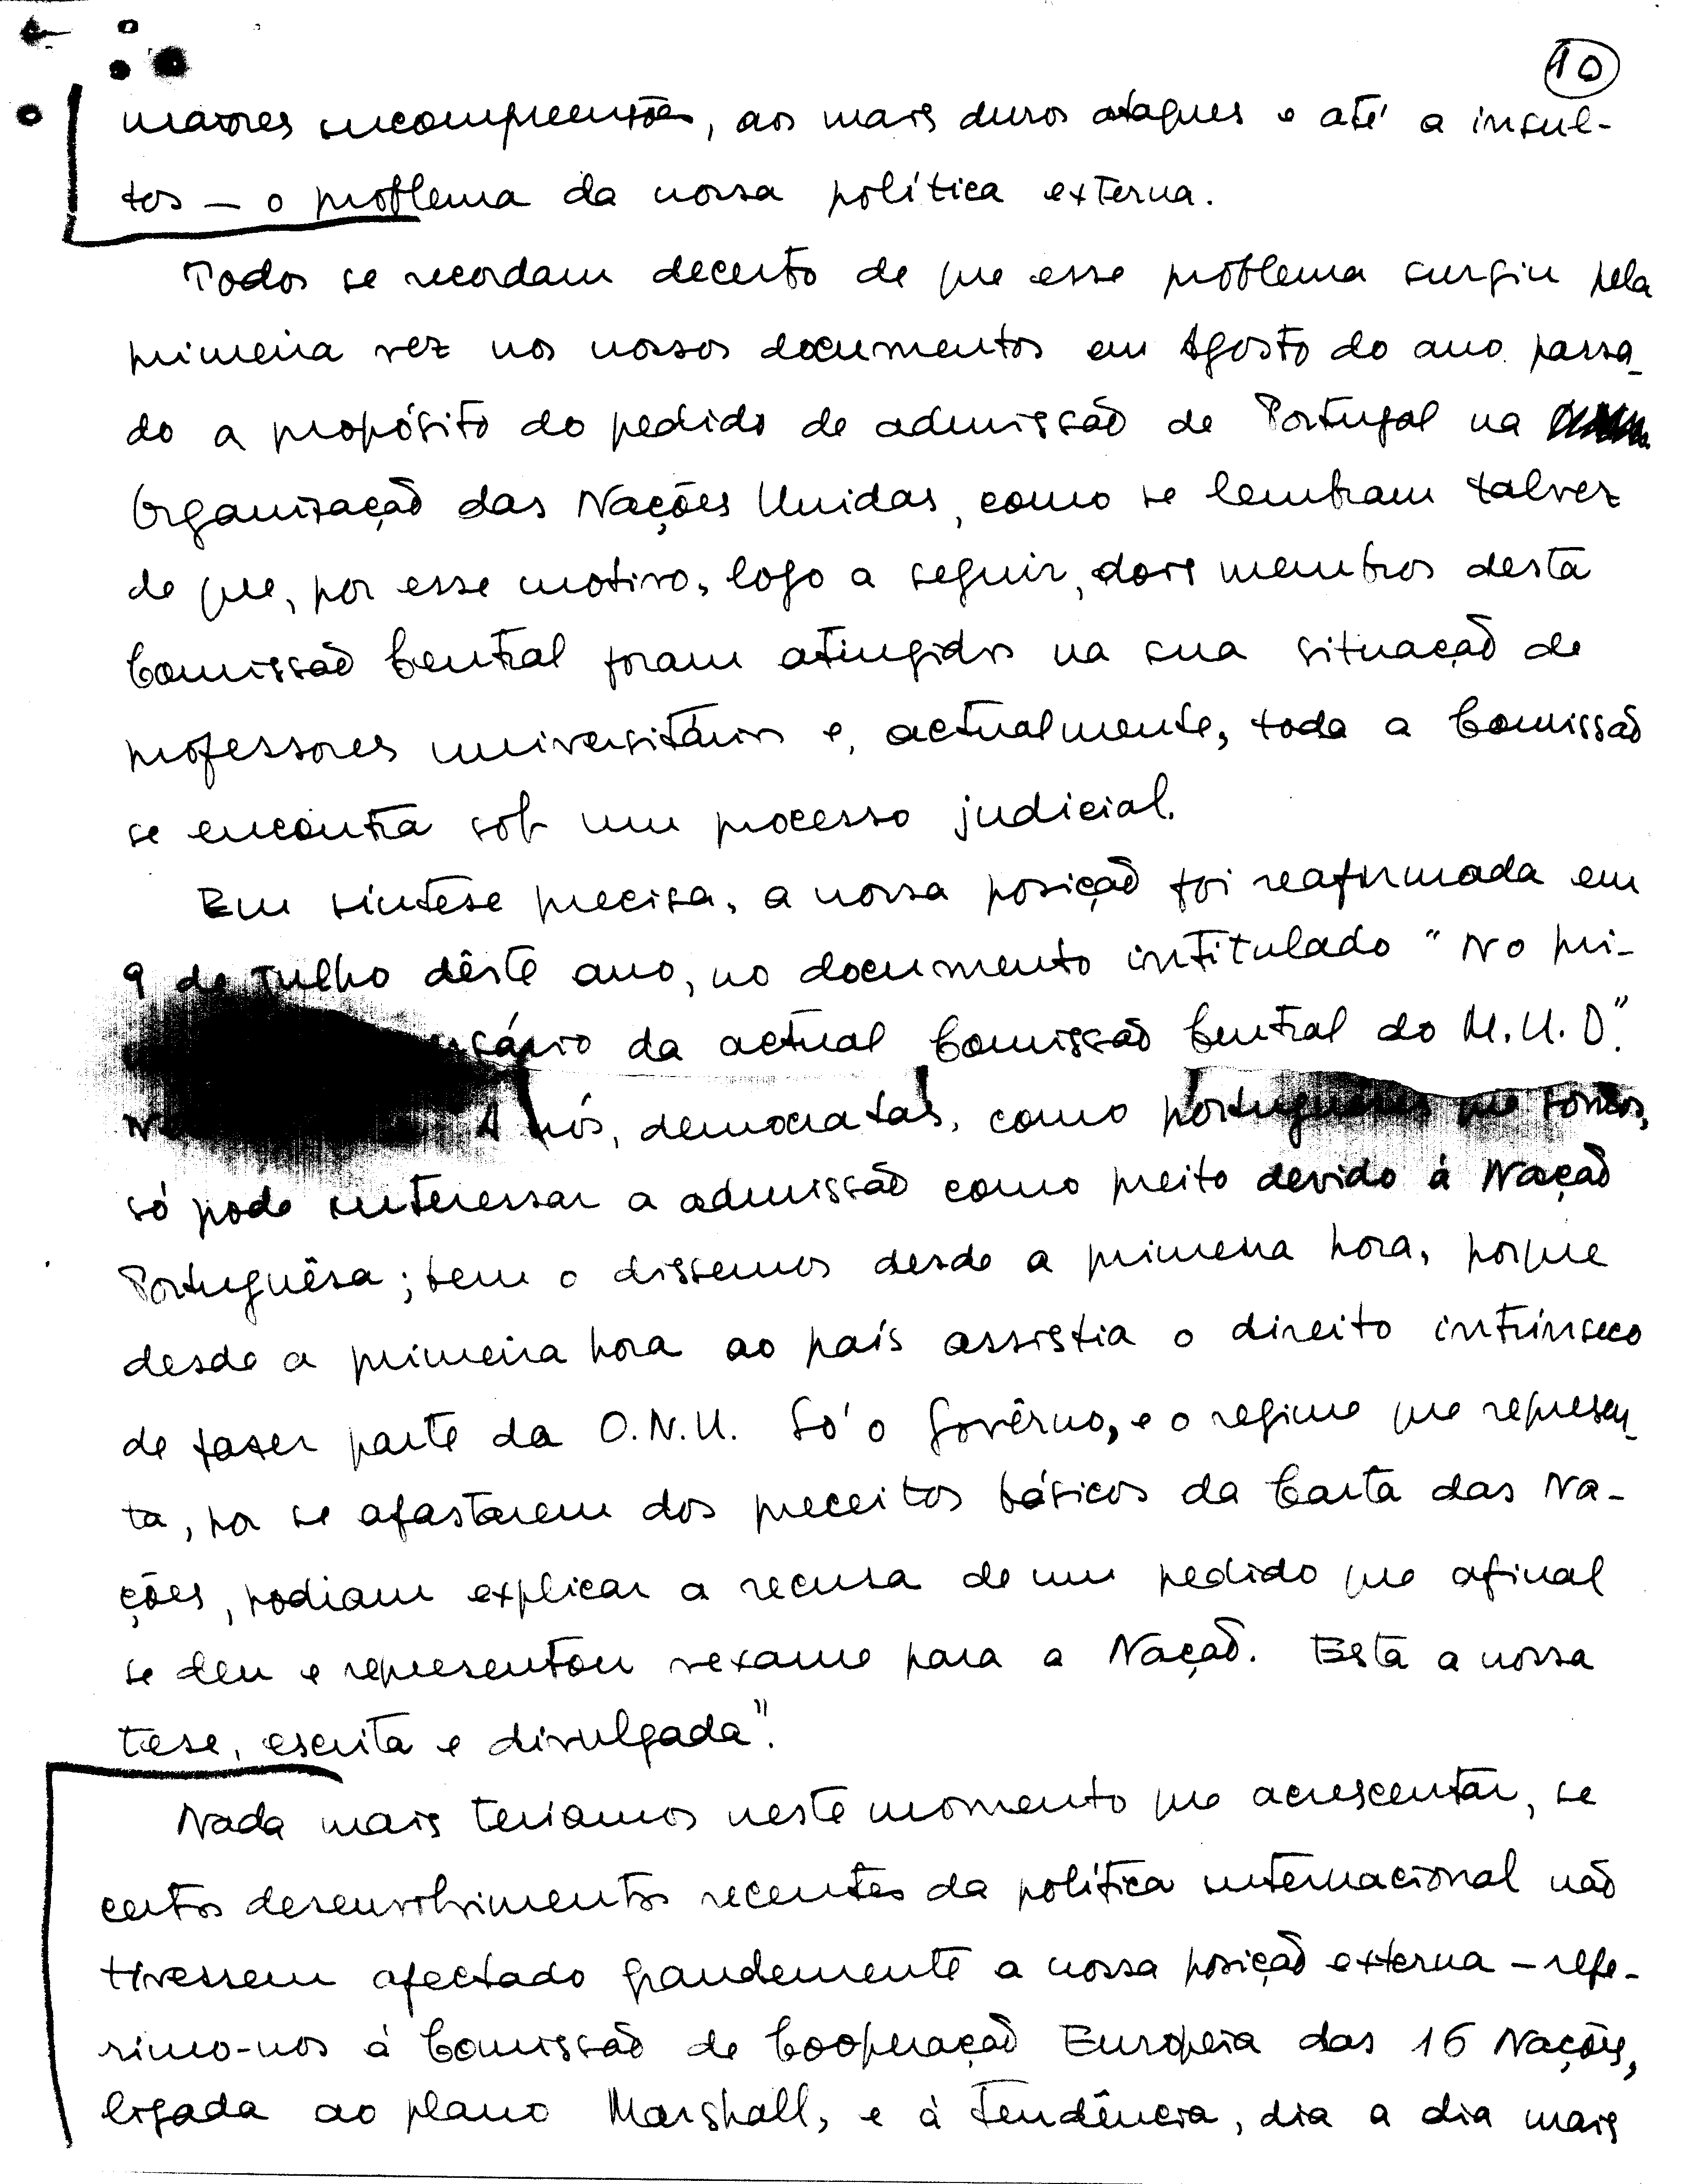 10
maiores incompreensões, aos mais duros ataques e até a insul-
tos — o problema da nossa política externa.
Todos se recordam decerto de que esse problema surgiu pela
primeira vez nos nossos documentos em Agosto do ano passa-
do a propósito do pedido de admissão de Portugal na
Organização das Nações Unidas, como se lembram talvez
de que, por esse motivo, logo a seguir, dois membros desta
Comissão Central foram atingidos na sua situação de
professores universitários e, actualmente, toda a Comissão
se encontra sob um processo judicial.
Em síntese precisa, a nossa posição foi reafirmada em
9 de Julho dêste ano, no documento intitulado "No pri-
da actual Comissão Central do M.U.D."
A nós, democratas, como portugueses que somos,
só pode interessar a admissão como preito devido à Nação
Portuguêsa; bem o dissemos desde a primeira hora, porque
desde a primeira hora ao país assistia o direito intrínseco
de fazer parte da O.N.U. Só o Govêrno, e o regime que represen-
ta, por se afastarem dos preceitos básicos da Carta das Na-
ções, podiam explicar a recusa de um pedido que afinal
se deu e representou vexame para a Nação. Esta a nossa
tese, escrita e divulgada".
Nada mais teriamos neste momento que acrescentar, se
certos desenvolvimentos recentes da política internacional não
tivessem afectado grandemente a nossa posição externa — refe-
rimo-nos à Comissão de Cooperação Europeia das 16 Nações,
ligada ao plano Marshall, e à tendência, dia a dia mais